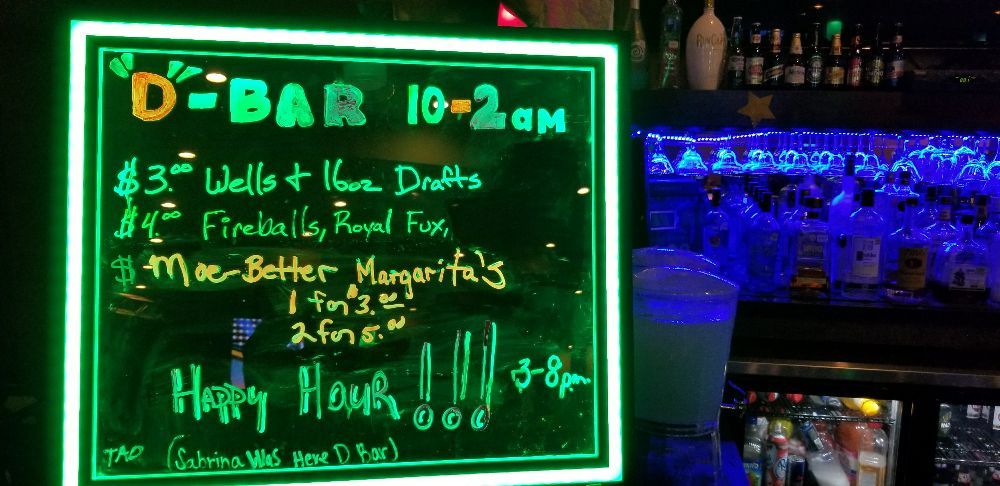 D-BAR 10-2am
$3.00 Wells + 16oz Drafts
$4.00 Fireballs, Royal Fux,
$ Moe-Better Margarita's
1 for $3.00
2 for 5.00
Happy Hour !!! 3-8pm
TAO (Sabrina Was Here D Bar)